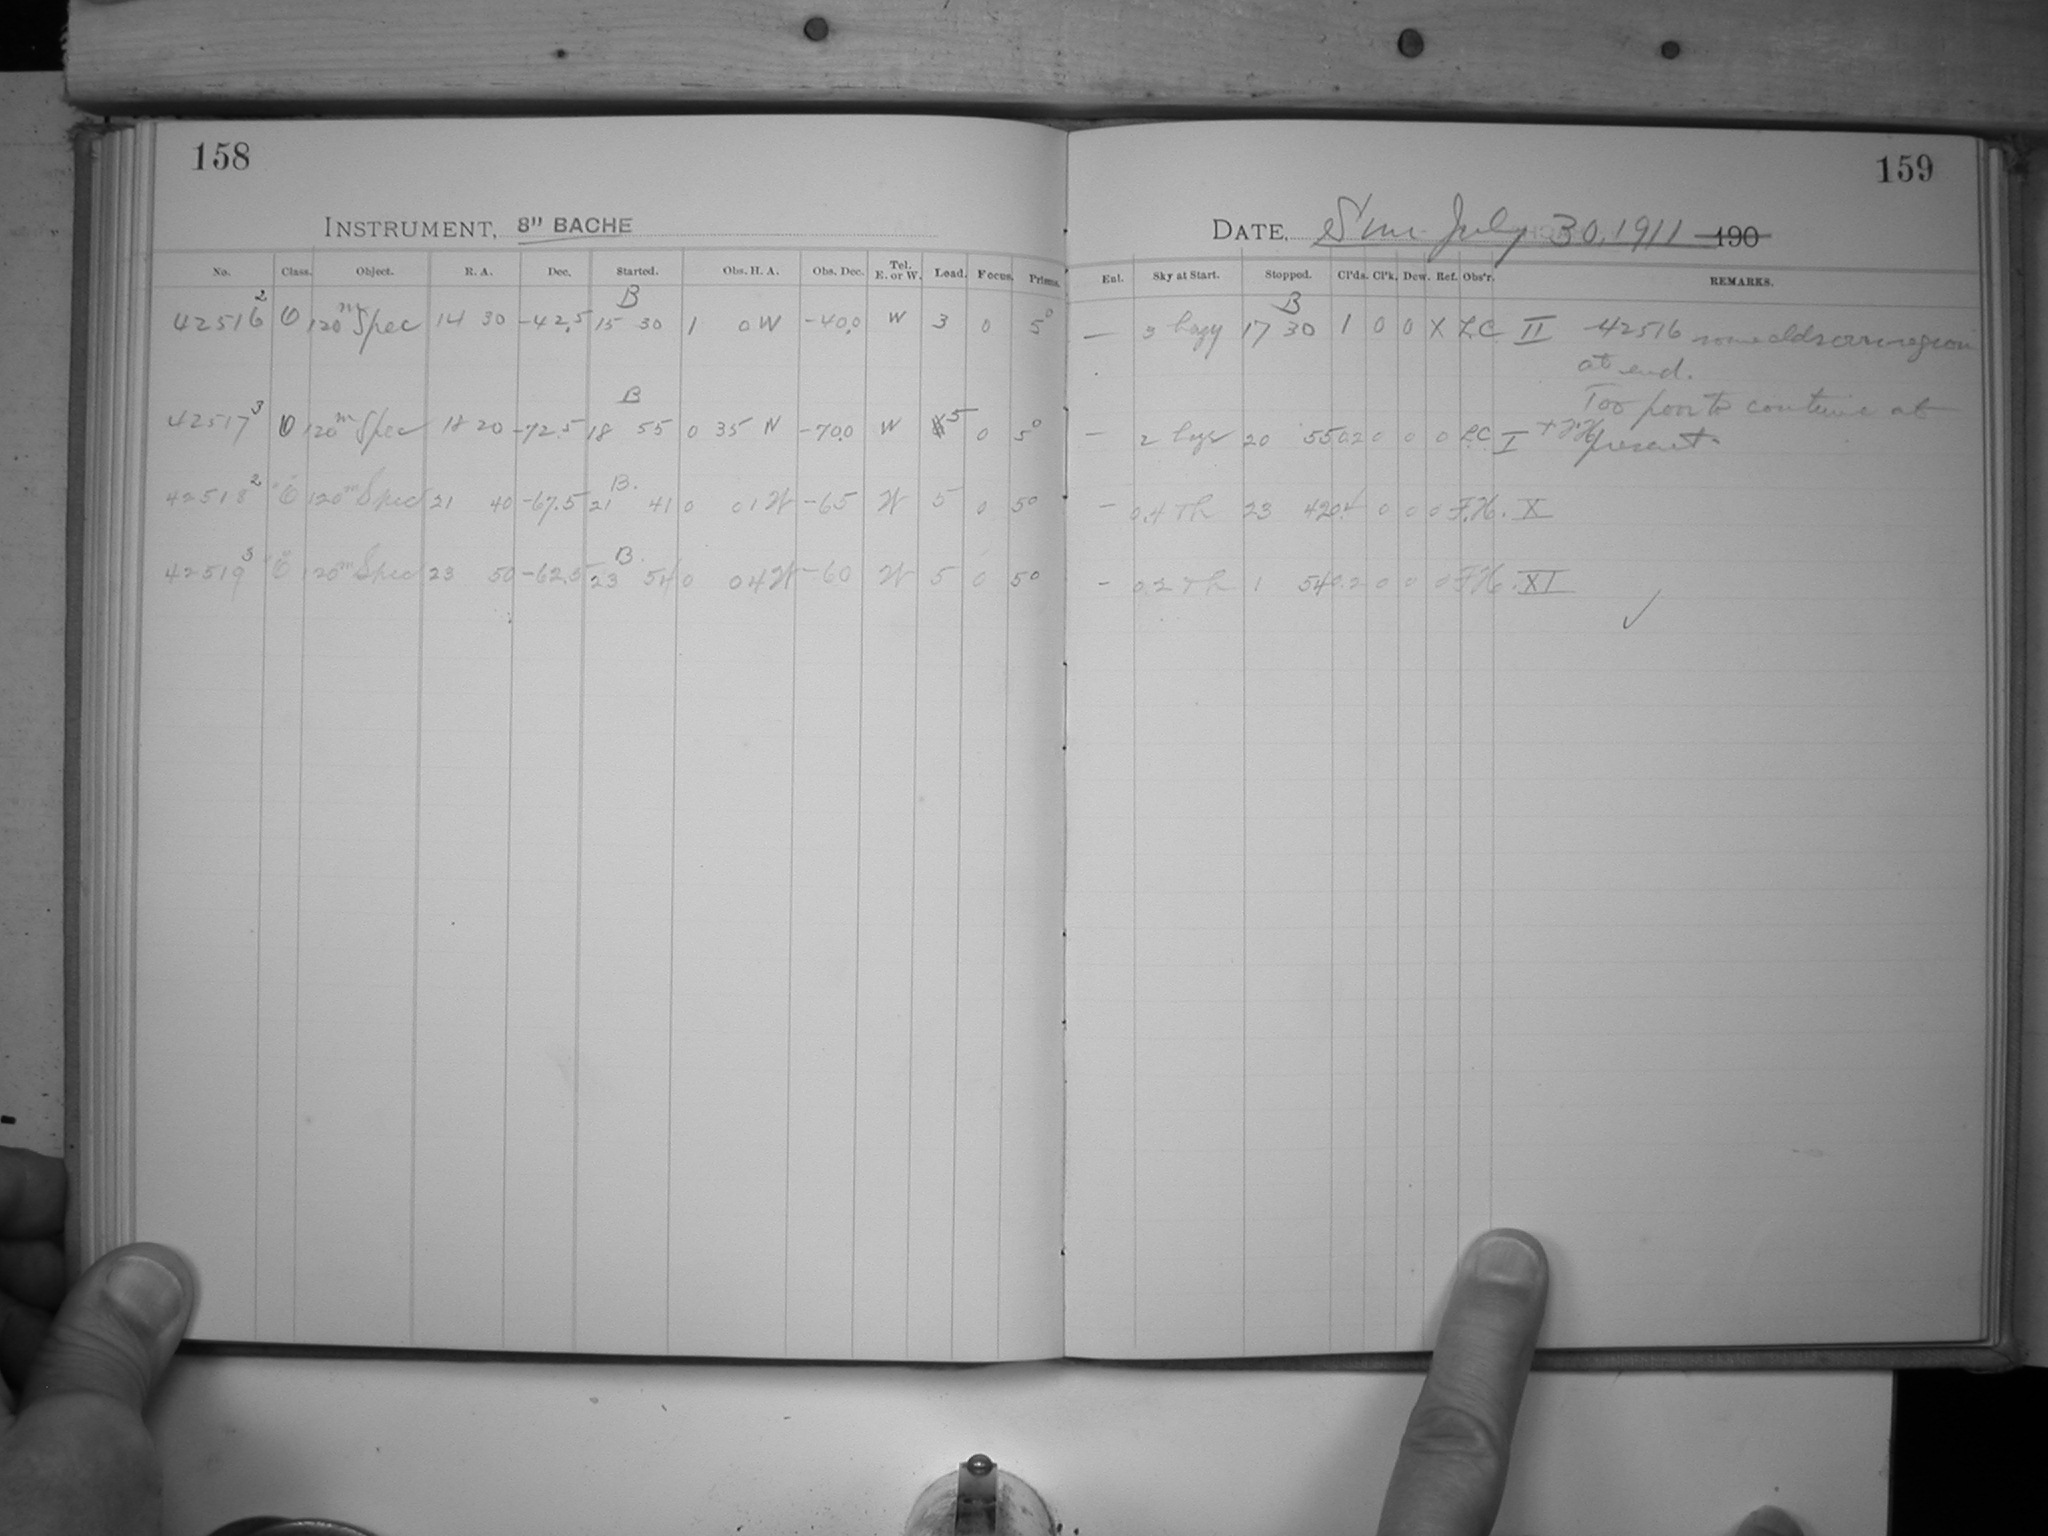 158
INSTRUMENT, 8" BACHE
No. Class. Object. R. A. Dec. Started. Obs. H. A. Obs. Dec. Tel. E. or W. Load. Focus. Prisms.
B
42516 2 120m Spec 14 30 -42.5 15 30 1 0 W -40.0 W 3 0 5°
B
42517 3 120m Spec 18 20 -72.5 18 55 0 35 W -70.0 W 5 0 5°
B.
42518 2 120m Spec 21 40 -67.5 21 41 0 01 W -65 W 5 0 5°
B
42519 3 120m Spec 23 50 -62.5 23 54 0 04 W -60 W 5 0 5°
159
DATE, Sun. July 30, 1911 190
Enl. Sky at Start. Stopped. Cl'ds. Cl'k. Dew. Ref. Obs'r. REMARKS.
B
— 3 hazy 17 30 1 0 0 X L.C. II 42516 some clds over region
at end.
Too poor to continue at
— 2 hazy 20 55 0.2 0 0 0 L.C. I + F.H. present.
- 0.4 Th 23 42 0.4 0 0 0 F.H. X
- 0.2 Th 1 54 0.2 0 0 0 F.H. XI
✓